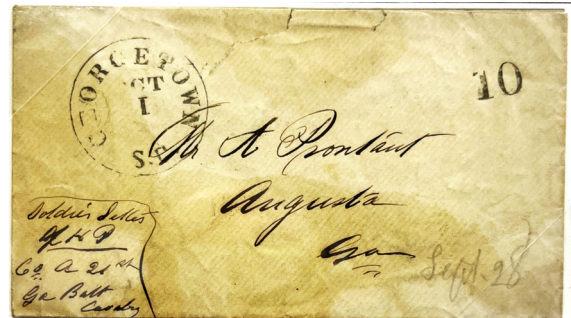 GEORGETOWN
OCT
1
S.C.
10
Mr A Prontaut
Augusta
Ga
Sept. 28
Soldier's Letter
of H P
Co A 21st
Ga Batt
Cavalry